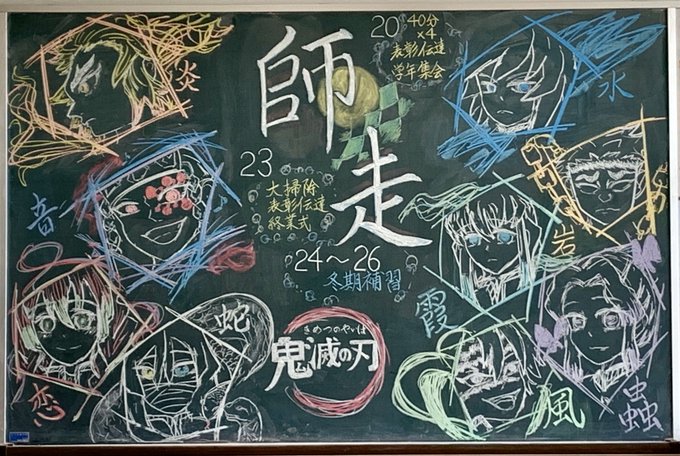 師走
20 40分
×4
表彰伝達
学年集会
23
大掃除
表彰伝達
終業式
24〜26
冬期補習
きめつのやいば
鬼滅の刃
炎
音
恋
蛇
水
岩
霞
風
蟲